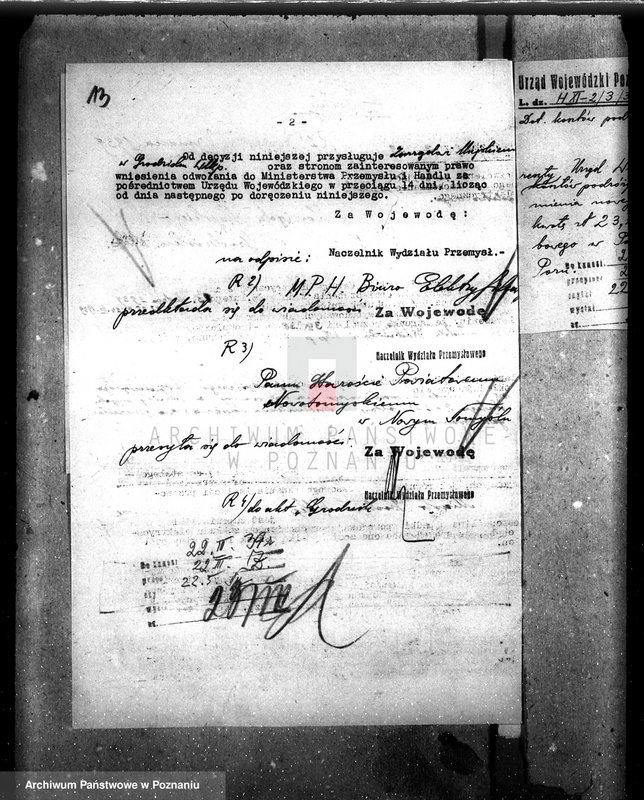 13
- 2 -
Od decyzji niniejszej przysługuje Zarządowi Miejskiemu
w Grodzisku Wlkp. oraz stronom zainteresowanym prawo
wniesienia odwołania do Ministerstwa Przemysłu i Handlu za
pośrednictwem Urzędu Wojewódzkiego w przeciągu 14 dni, licząc
od dnia następnego po doręczeniu niniejszego.
Za Wojewodę:
Naczelnik Wydziału Przemysł.-
na odpisie:
R 2) M.P.H. Biuro Elektryf.
przedkłada się do wiadomości
Za Wojewodę
Naczelnik Wydziału Przemysłowego
R 3)
Panu Staroście Powiatowemu
Nowotomyskiemu
w Nowym Tomyślu
przesyła się do wiadomości
Za Wojewodę
Naczelnik Wydziału Przemysłowego
R 4) do akt "Grodzisk
22.II.
22 II
22.
Urząd Wojewódzki Poz
L. dz. H XI-2/3/3
Dot. kontów pod
mienia
kwotę zł 23,
bowego w
ARCHIWUM PAŃSTWOWE
W POZNANIU
Archiwum Państwowe w Poznaniu